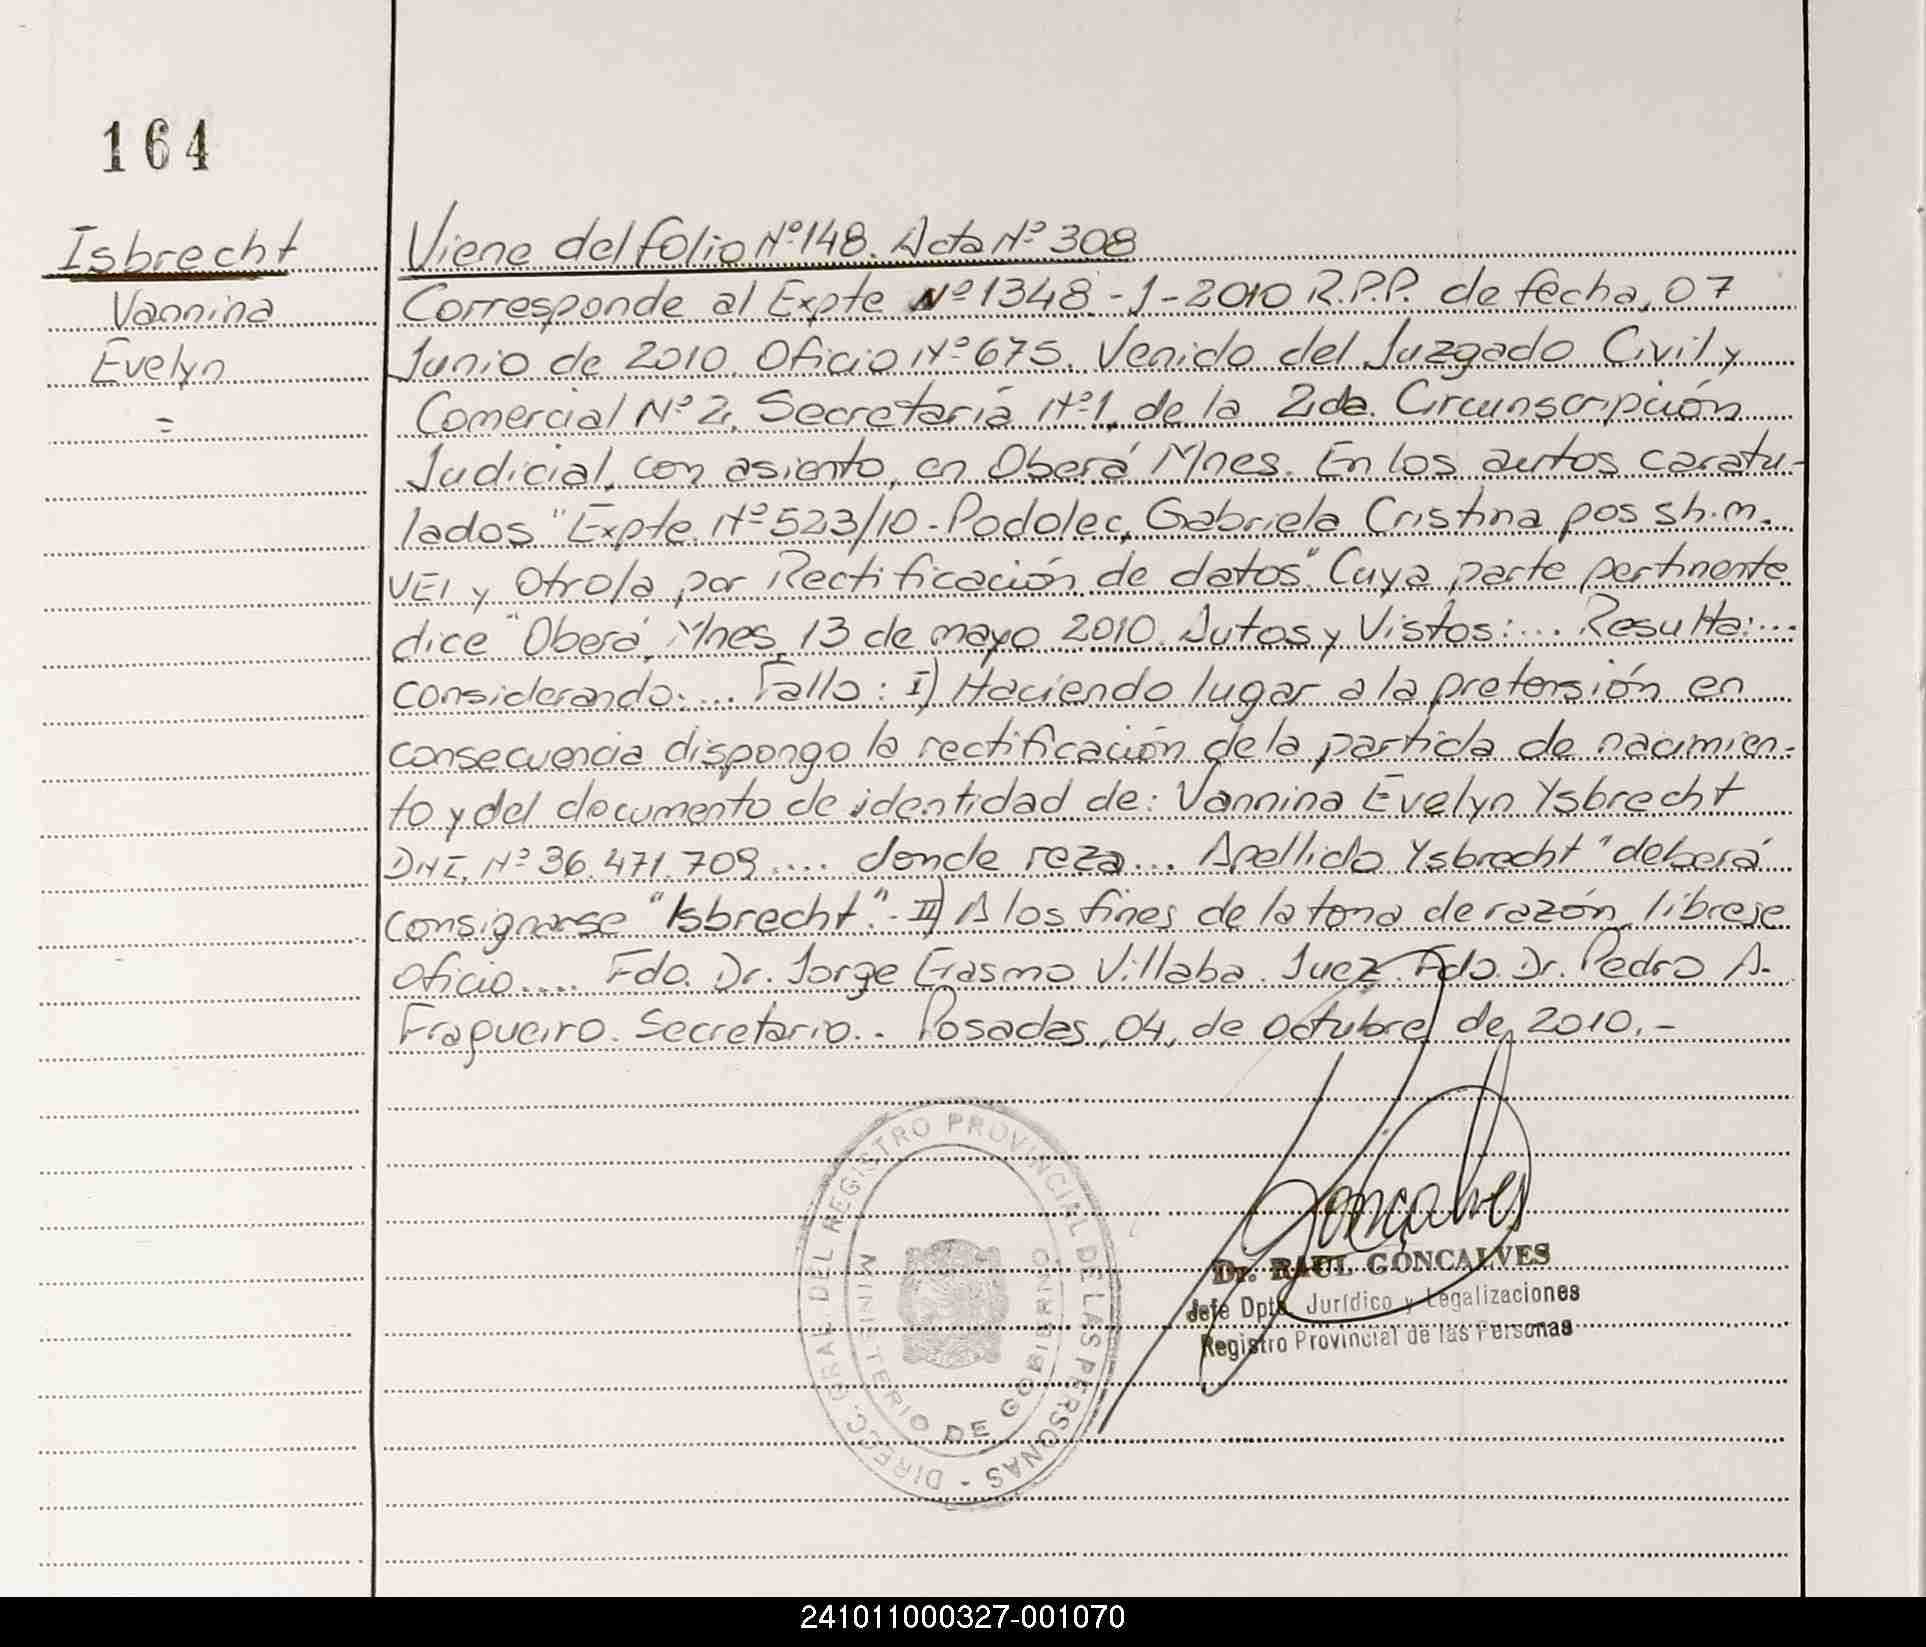 164
Isbrecht
Vannina
Evelyn
=
Viene del folio Nº 148. Acta Nº 308
Corresponde al Expte Nº 1348-J-2010 R.P.P. de fecha, 07
Junio de 2010. Oficio Nº 675. Venido del Juzgado Civil y
Comercial Nº 2, Secretaría Nº 1, de la 2da. Circunscripción
Judicial, con asiento, en Oberá Mnes. En los autos caratu-
lados "Expte. Nº 523/10 - Podolec, Gabriela Cristina pos sh.m.
VEI y Otro/a por Rectificación de datos" Cuya parte pertinente
dice "Oberá, Mnes, 13 de mayo 2010. Autos y Vistos:... Resulta:...
considerando:... Fallo: I) Haciendo lugar a la pretensión en
consecuencia dispongo la rectificación de la partida de nacimien-
to y del documento de identidad de: Vannina Evelyn Ysbrecht
DNI. Nº 36.471.709.... donde reza... Apellido Ysbrecht "deberá
consignarse "Isbrecht".- II) A los fines de la toma de razón, librese
oficio.... Fdo. Dr. Jorge Erasmo Villaba. Juez. Fdo. Dr. Pedro A.
Fragueiro. Secretario.. Posadas, 04, de octubre de 2010.-
DIRECC. GRAL. DEL REGISTRO PROVINCIAL DE LAS PERSONAS -
MINISTERIO DE GOBIERNO
Goncalves
Dr. RAUL GONCALVES
Jefe Dpto. Jurídico y Legalizaciones
Registro Provincial de las Personas
241011000327-001070